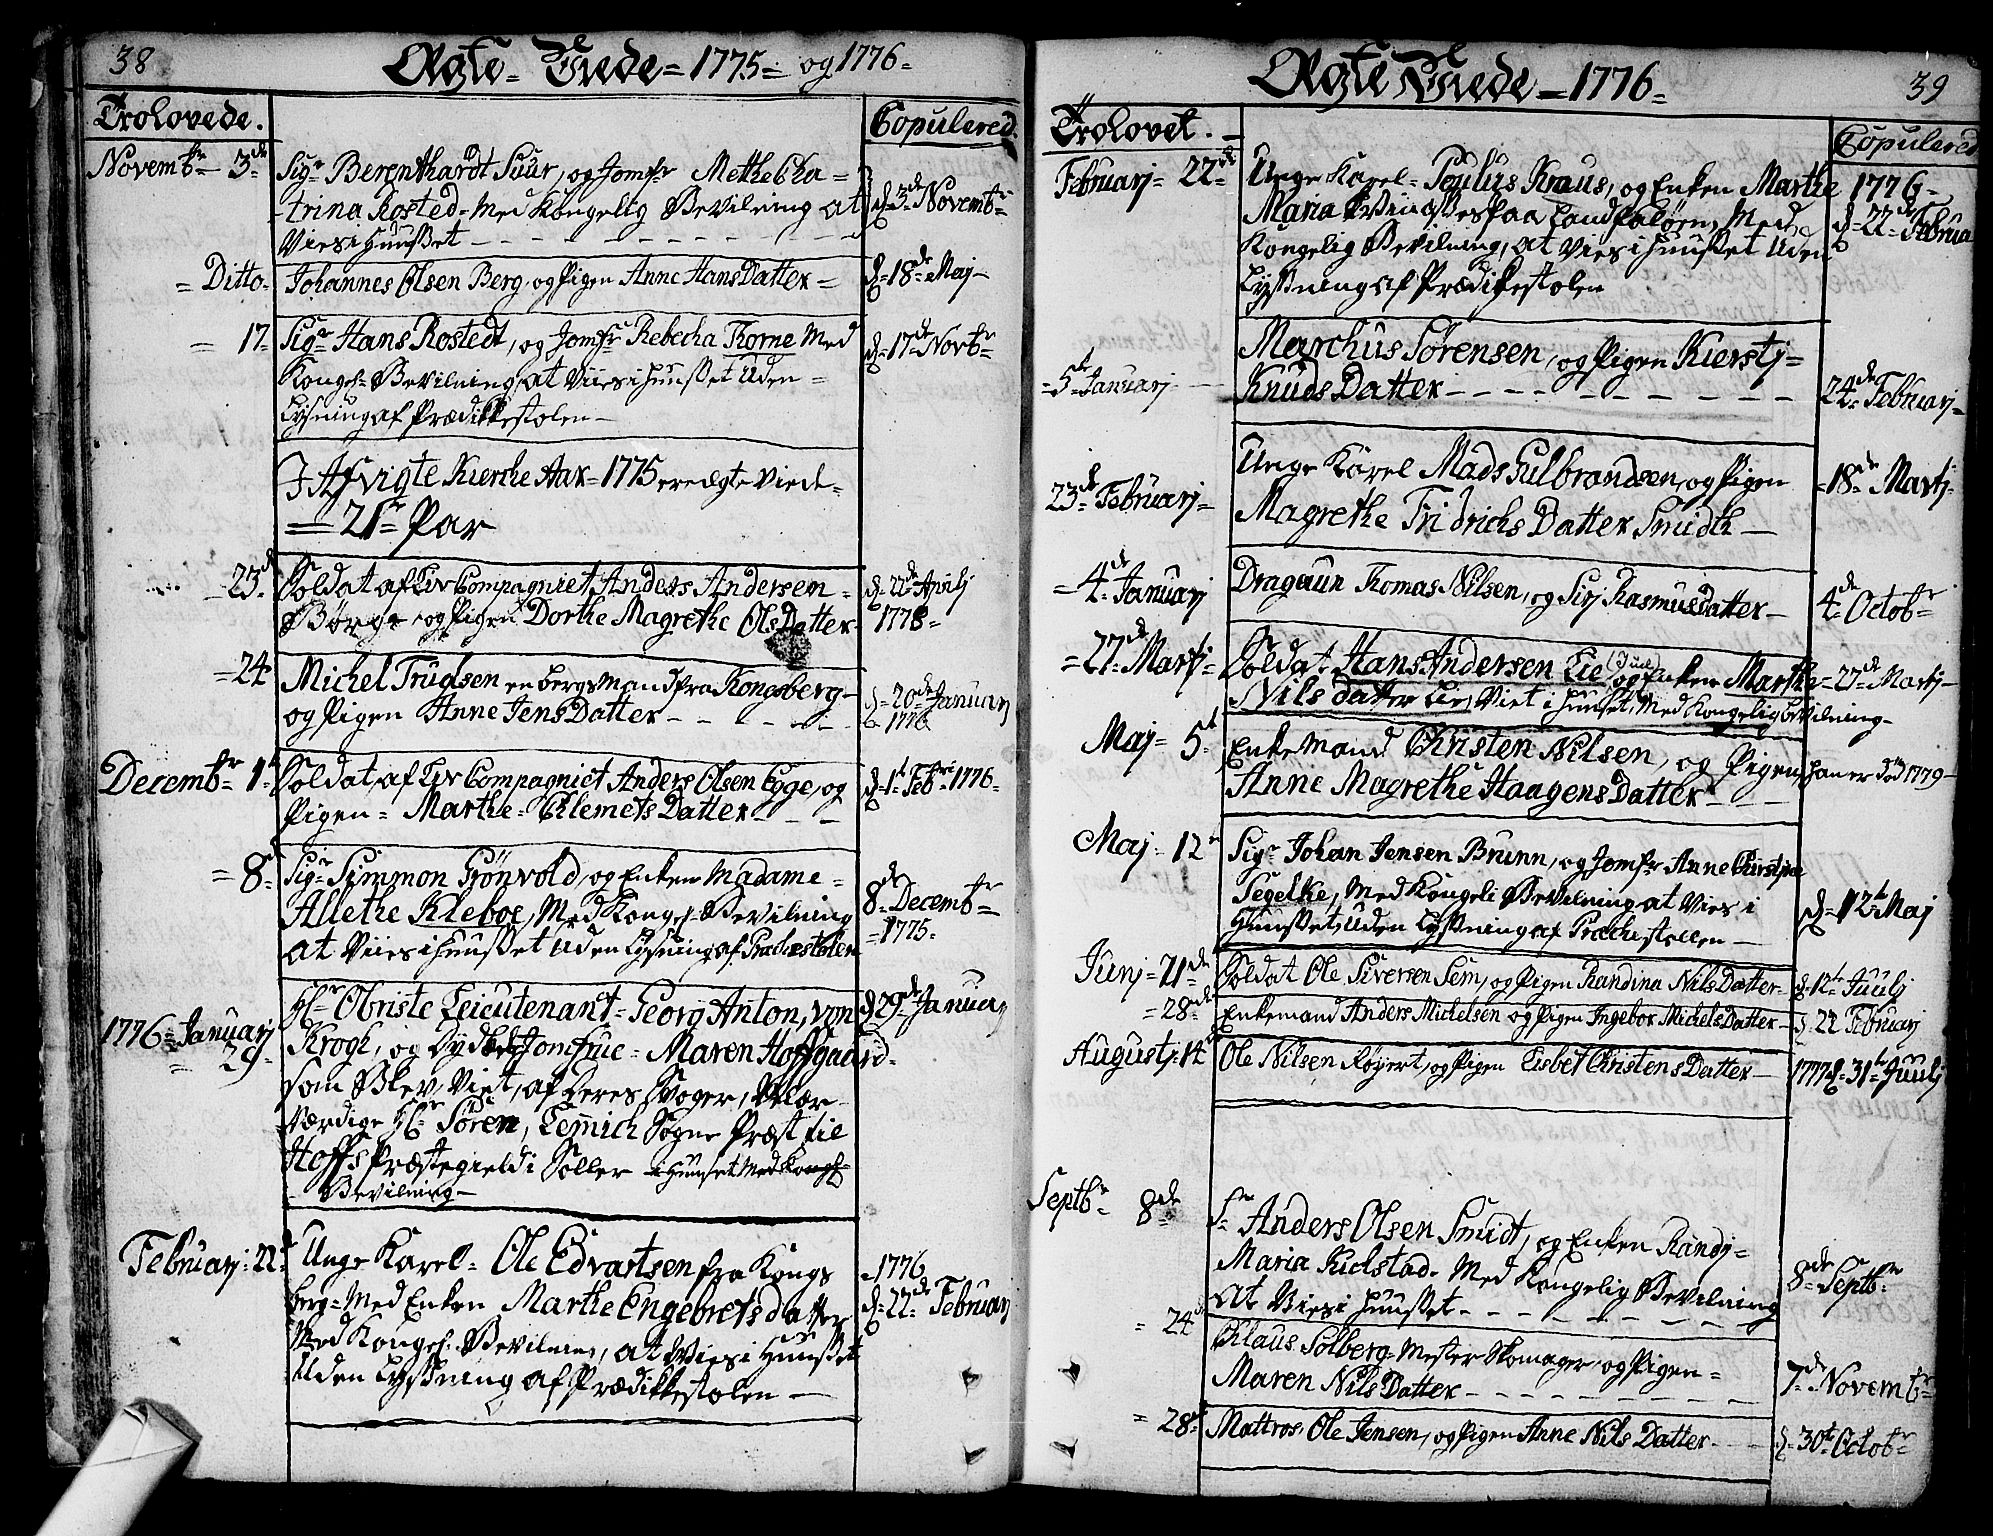 38
Ægte-Viede-1775- og 1776-
Trolovede.
Copulered.
Novembr- 3de
Sigr Berenthardt Suur, og Jomfr Methe Cha=
-trina Rosted- Med Kongelig Bevilning At
Vies i Huusset
d- 3de Novembr
= Ditto-
Johannes Olsen Berg, og Pigen Anne HansDatter=
d- 18de Maj-
- 17-
Sigr Hans Rostedt, og Jomfr Rebecha Thorne Med
Kongel- Bevilning, at Viies i Huusset Uden=
Lysning af Prædikkestolen-
d- 17de Novbr
I Afvigte Kierche Aar- 1775 er ægte Viede-
= 21- Par
- 23de
Soldat af Liv Compagniet Anders Andersen-
Børge- og Pigen Dorthe Magrethe OlsDatter-
d- 22de Aprilj
1778-
= 24
Michel Trudsen en bergsMand fra Kongsberg-
og Pigen Anne JensDatter
d- 20de Januarj
1776
Decembr 1t
Soldat, af Liv Compagniet Anders Olsen Egge, og
Pigen- Marthe- ClemetsDatter
d- 1t Febr- 1776-
= 8de
Sigr Simmon Gjönvold, og Enken Madame-
Allethe Kleboe, Med Kongel- Bevilning
At Viies i Huusset Uden Lysning af
8de Decembr
-1775-
1776- Januarj
29-
Hr Obriste Leieutenant- Georg Anton, von
Krogh, og Jomfrue- Maren Hoffgaard-
som Blev, Viet, af Deres Svoger,
Værdige Hr Sören, Lemich Sogne Præst til
Hoffs Præstegield i Soller i Huuset Med Kongl-
Bevilning-
d- 29de Januarj
Februarj- 22d
Unge Karel- Ole Edvartsen fra Kongs
berg- Med Enken Marthe Engebretsdatter
Med Kongel- Bevilning, at Vies i Huusset
Uden Lyssning af Prædikkestolen-
-1776
d- 22de Februarj
Ægte Viede-1776-
39
Trolovet.
Copulered
Februarj- 22de
Unge Karel- Poulus Kraus, og Enken Marthe
Maria paa Landfalörn, Med
Kongelig Bevilning, At Vies i Huusset Uden
Lyssning af Prædikestolen
1776-
d- 22de Februa
=5te Januarj
Marchus Sörensen, og Pigen Kierstj=
KnudsDatter
24de Februarj-
23de Februarj-
Unge Karel Mads Gulbrandsen, og Pigen
Magrethe FridrichsDatter Smidth-
-18de Martj-
= 4de Januarj
Dragoun Thomas Nilsen, og Sirj Rasmusdatter-
4de Octobr-
=27de Martj-
Soldat Hans Andersen Lie (Jud) og Enken Marthe
Nils datter Lie, Viet i Huuset, Med Kongelig beVilning-
=27de Martj-
Maj- 5t
EnkeMand Christen Nilsen, og Pigen,
Anne Magrethe HaagensDatter
han er död 1779-
Maj- 12te
Sigr Johan Jensen Brunn, og Jomfr Anne Christine
Segelke, Med Kongeli Bevilning at Vies i
Huusset, Uden Lyssning af Præchestollen-
d- 12te Maj
Junj- 21de
Soldat Ole Siversen Sem, og Pigen Randina NilsDatter-
d- 12te Juulj
=28de
Enkemand Anders Michelsen og Pigen Ingebor MichelsDatter-
d- 22 Februarj
Augustj- 14de
Ole Nilsen Röyert, og Pigen Lisbet ChristensDatter-
1777 d- 31te Juulj
Septbr 8de
Sr Anders Olsen Smidt, og Enken Randj=
Maria Kielstad- Med Kongelig Bevilning
At Vies i Huusset
8de Septbr
= 24d
Claus Solberg- Mester Skomager, og Pigen-
Maren NilsDatter
7de Novembr
= 28de
Mattros- Ole Jensen, og Pigen Anne NilsDatter
d- 30te Octobr-